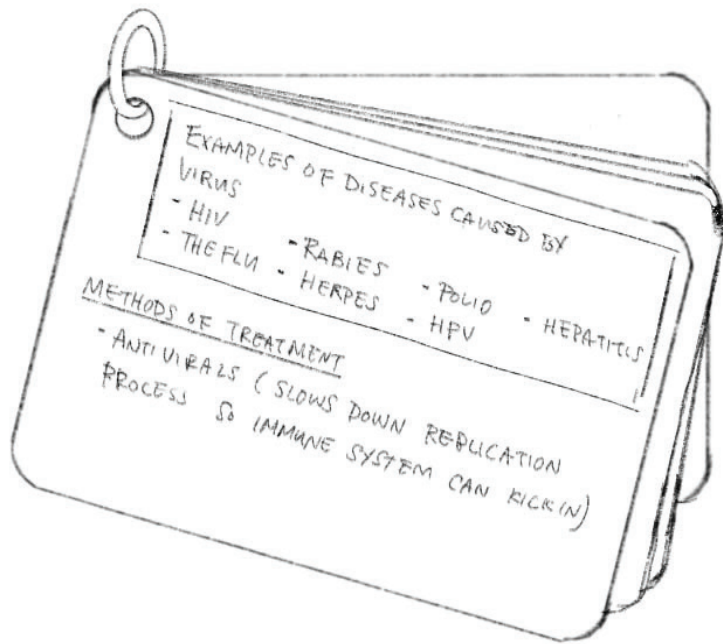 EXAMPLES OF DISEASES CAUSED BY
VIRUS
- HIV - RABIES - POLIO - HEPATITIS
- THE FLU - HERPES - HPV
METHODS OF TREATMENT
- ANTIVIRALS (SLOWS DOWN REPLICATION
PROCESS SO IMMUNE SYSTEM CAN KICK IN)